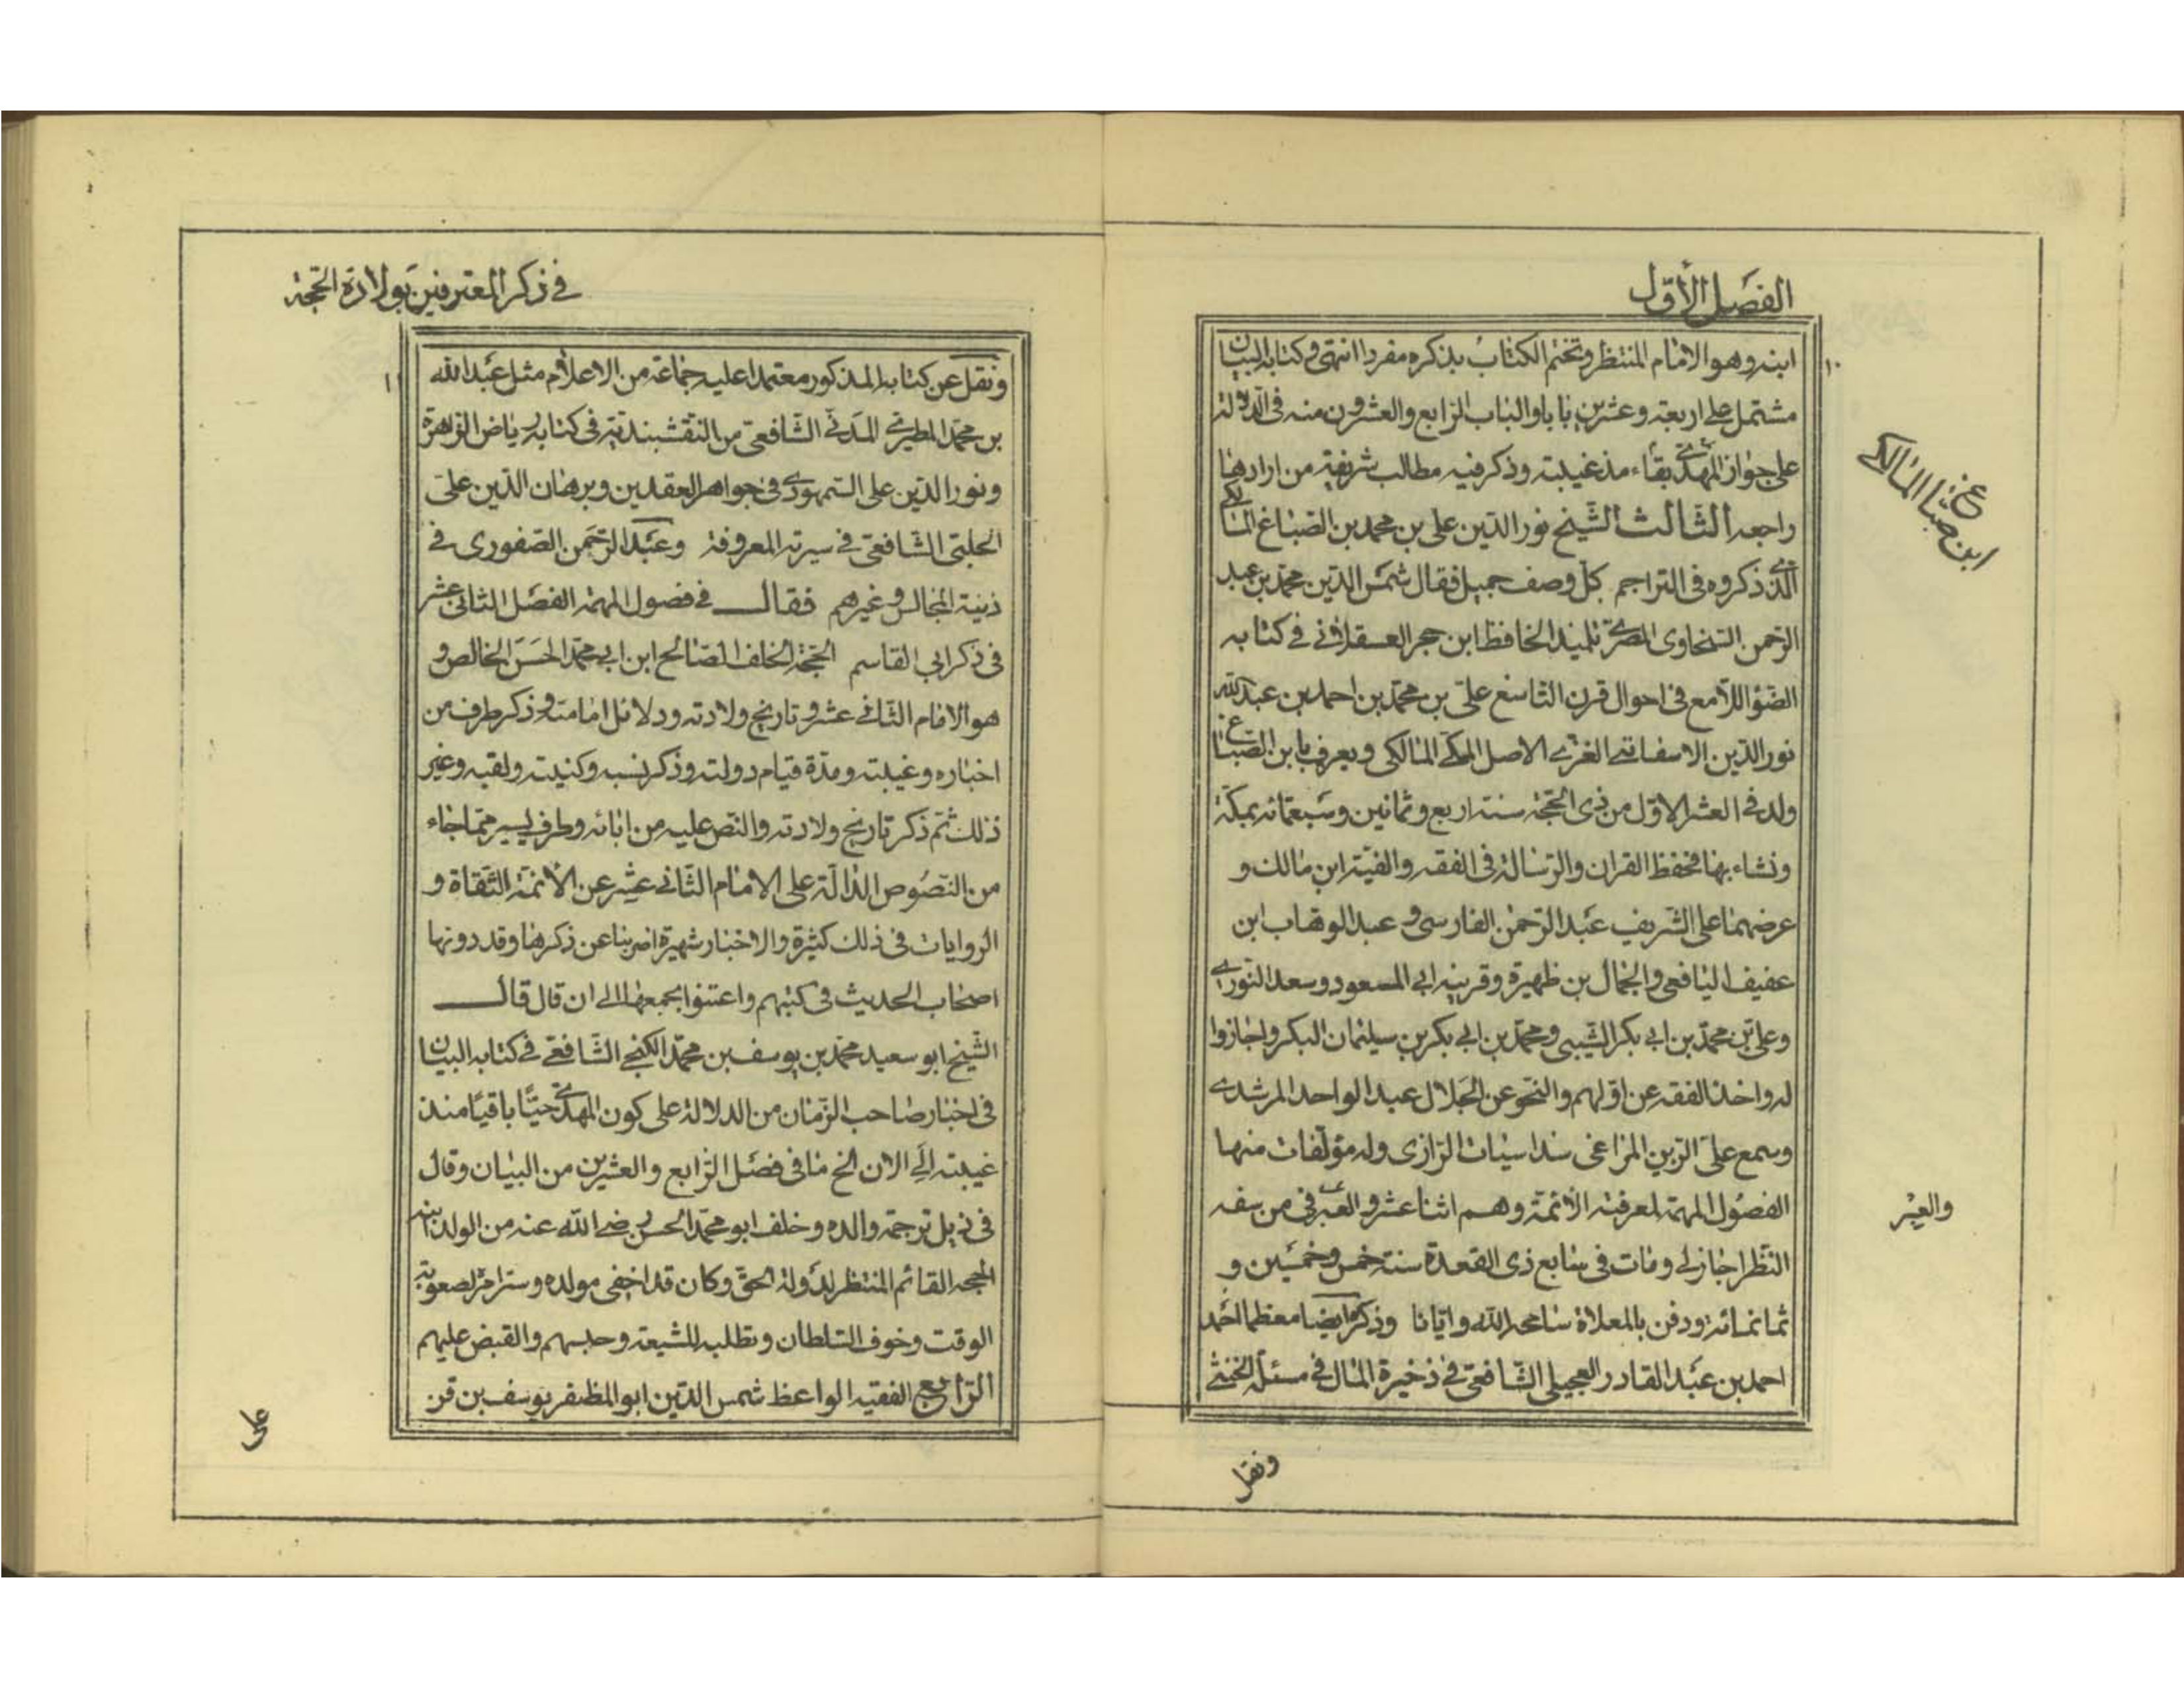 الفصل الأوّل
١٠
ابنه وهو الامام المنتظر ونختم الكتاب بذكره مفردا انتهى وكتابه البيان
مشتمل على اربعة وعشرين بابا والباب الرابع والعشرون منه فى الدلالة
على جواز بقاء المهدى ع مذ غيبته وذكر فيه مطالب شريفة من ارادها
راجعه الثالث الشيخ نور الدين على بن محمد بن الصباغ المالكى
الذى ذكروه فى التراجم بكل وصف جميل فقال شمس الدين محمد بن عبد
الرحمن السخاوى المصرى تلميذ الحافظ ابن حجر العسقلانى فى كتابه
الضوء اللامع فى احوال قرن التاسع علىّ بن محمد بن احمد بن عبد الله
نور الدين الاسفاقسى الغزى الاصل المكى المالكى ويعرف بابن الصباغ
ولد فى العشر الاول من ذى الحجّة سنة اربع وثمانين وسبعمائه بمكّة
ونشاء بها فحفظ القران والرسالة فى الفقه والفية ابن مالك و
عرضهما على الشريف عبد الرحمن الفارسى و عبد الوهاب ابن
عفيف اليافعى والجمال بن ظهيرة وقرينه ابى المسعود وسعد النورى
وعلى بن محمد بن ابى بكر الشيبى ومحمد بن ابى بكر بن سيلمان البكر واجازوا
له واخذ الفقه عن اولهم والنحو عن الجلال عبد الواحد المرشدى
وسمع على الزين المراغى سداسيات الرازى وله مؤلفات منها
الفصول المهمة لمعرفة الأئمة وهم اثنا عشر و العبر فى من سفه
النظر اجاز لى ومات فى سابع ذى القعدة سنة خمس وخمسين و
ثمانمائه ودفن بالمعلاة سامحه الله وايانا وذكره ايضا معظما احمد
احمد بن عبد القادر العجيلى الشافعى فى ذخيرة المال فى مسئلة الخنثى
ابن صباغ المالكى
والعبر
ونقل
فى ذكر المعترفين بولادة الحجّة
١١
ونقل عن كتابه المذكور معتمدا عليه جماعة من الاعلام مثل عبد الله
بن محمد المطيرى المدنى الشافعى من النقشبندية فى كتابه رياض الزاهرة
ونور الدين على السمهودى فى جواهر العقدين وبرهان الدين على
الحلبى الشافعى فى سيرته المعروفة وعبد الرحمن الصفورى فى
نزهة المجالس وغيرهم فقال فى فصول المهمة الفصل الثانى عشر
فى ذكر ابى القاسم الحجّة الخلف الصالح ابن ابى محمد الحسن الخالص و
هو الامام الثانى عشر و تاريخ ولادته ودلائل امامته وذكر طرف من
اخباره وغيبته ومدّة قيام دولته وذكر نسبه وكنيته ولقبه وغير
ذلك ثم ذكر تاريخ ولادته والنص عليه من ابائه وطرف يسير مما جاء
من النصوص الدالة على الامام الثانى عشر عن الأئمة الثقاة و
الروايات فى ذلك كثيرة والاخبار شهيرة اضربنا عن ذكرها وقد دونها
اصحاب الحديث فى كتبهم واعتنوا بجمعها الى ان قال قال
الشيخ ابو سعيد محمد بن يوسف بن محمد الكنجى الشافعى فى كتابه البيان
فى اخبار صاحب الزمان من الدلالة على كون المهدى حيّا باقيا منذ
غيبته الى الان الخ ما فى فصل الرابع والعشرين من البيان وقال
فى ذيل ترجمة والده وخلف ابو محمد الحسن رضى الله عنه من الولد ابنه
الحجه القائم المنتظر لدولة الحق وكان قد اخفى مولده وستر امره لصعوبة
الوقت وخوف السلطان وتطلبه للشيعة وحبسهم والقبض عليهم
الرابع الفقيه الواعظ شمس الدين ابو المظفر يوسف بن قز
على